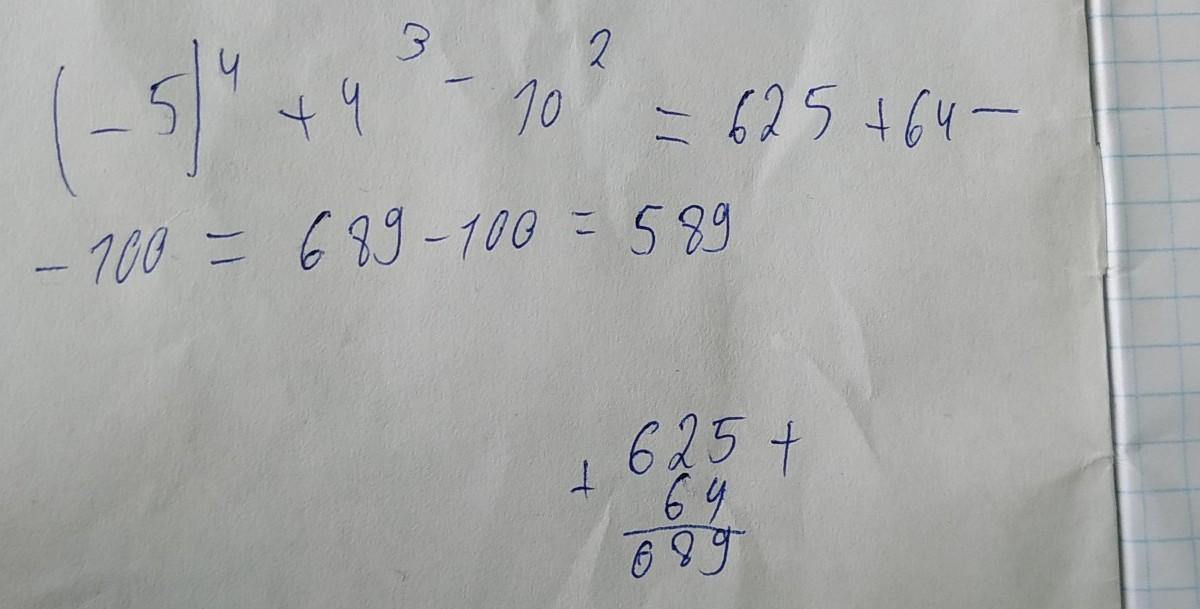 (-5)⁴ + 4³ - 10² = 625 + 64 -
- 100 = 689 - 100 = 589
+ 625 +
64
689